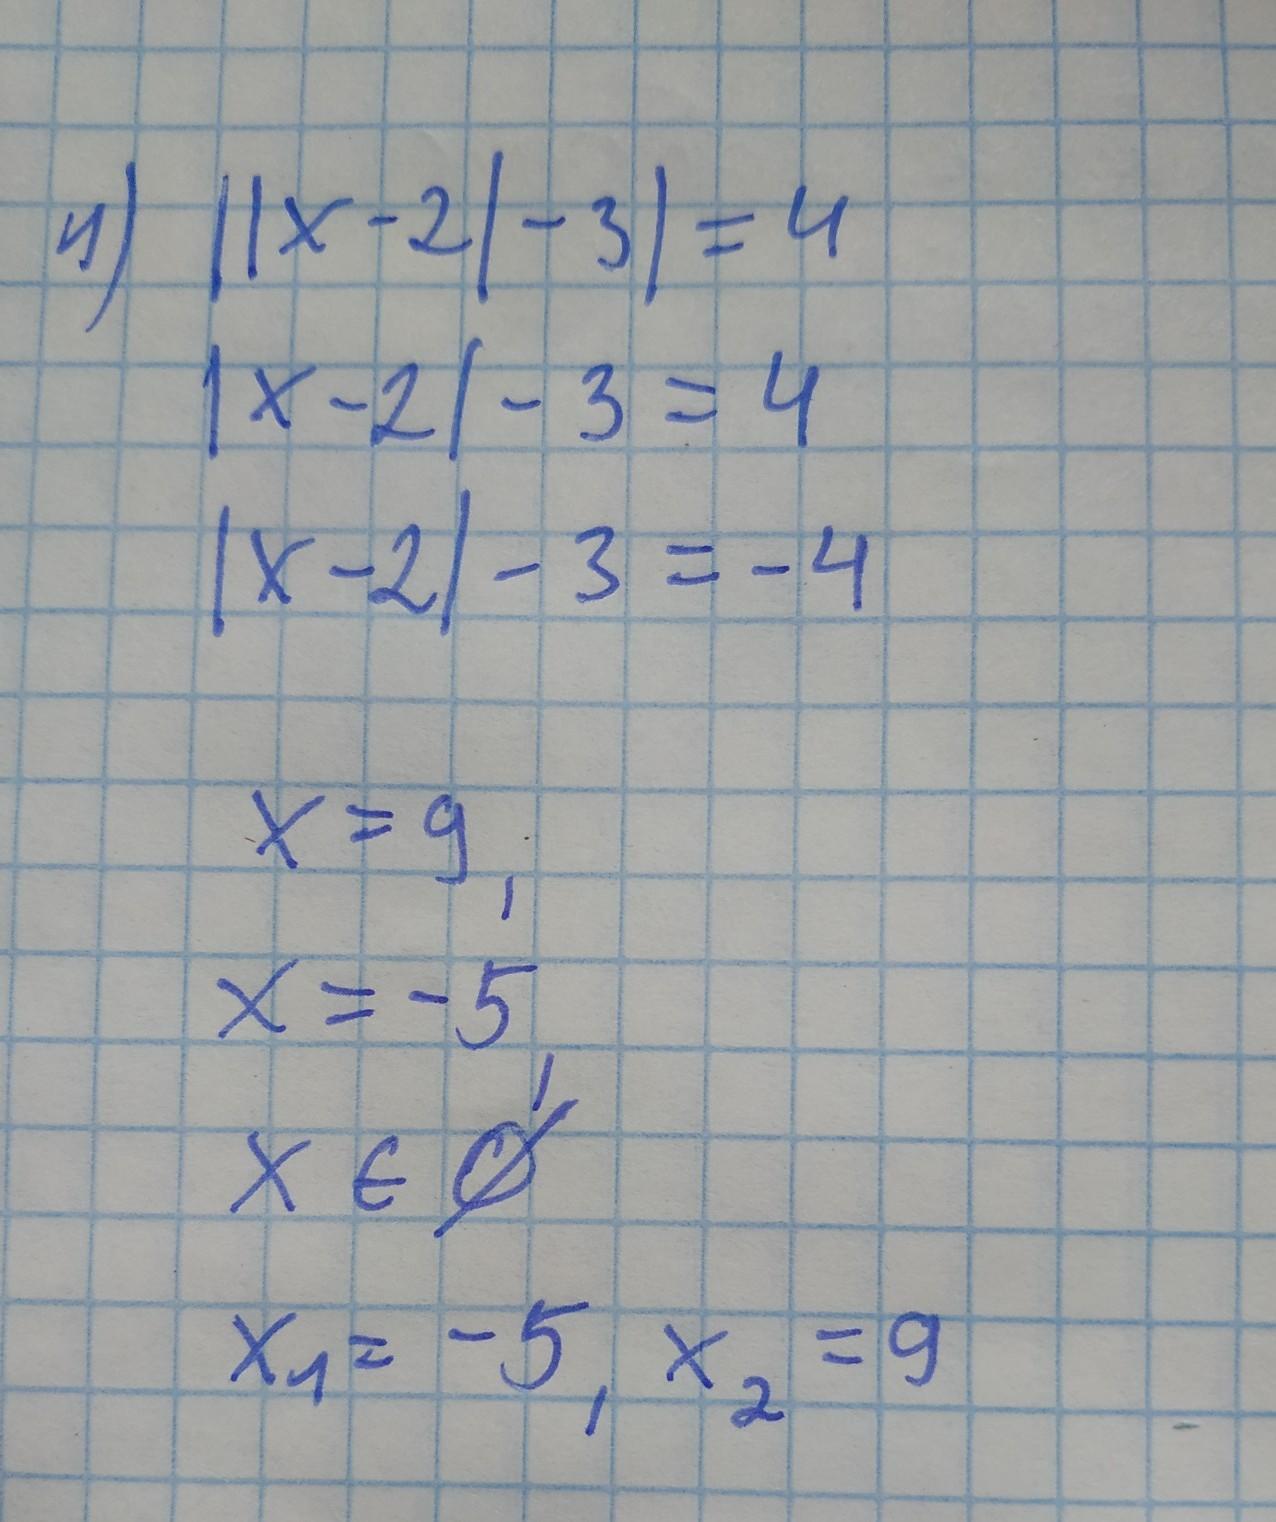 и) ||x-2|-3|=4
|x-2|-3=4
|x-2|-3=-4
x=9,
x=-5,
x∈∅
x₁=-5, x₂=9